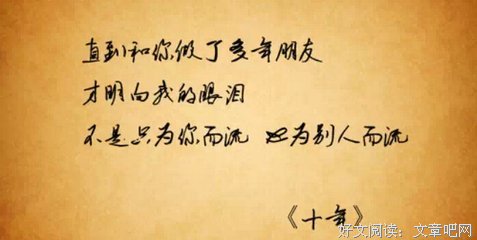 直到和你做了多年朋友
才明白我的眼泪
不是只为你而流 也为别人而流
《十年》
好文阅读：文章吧网